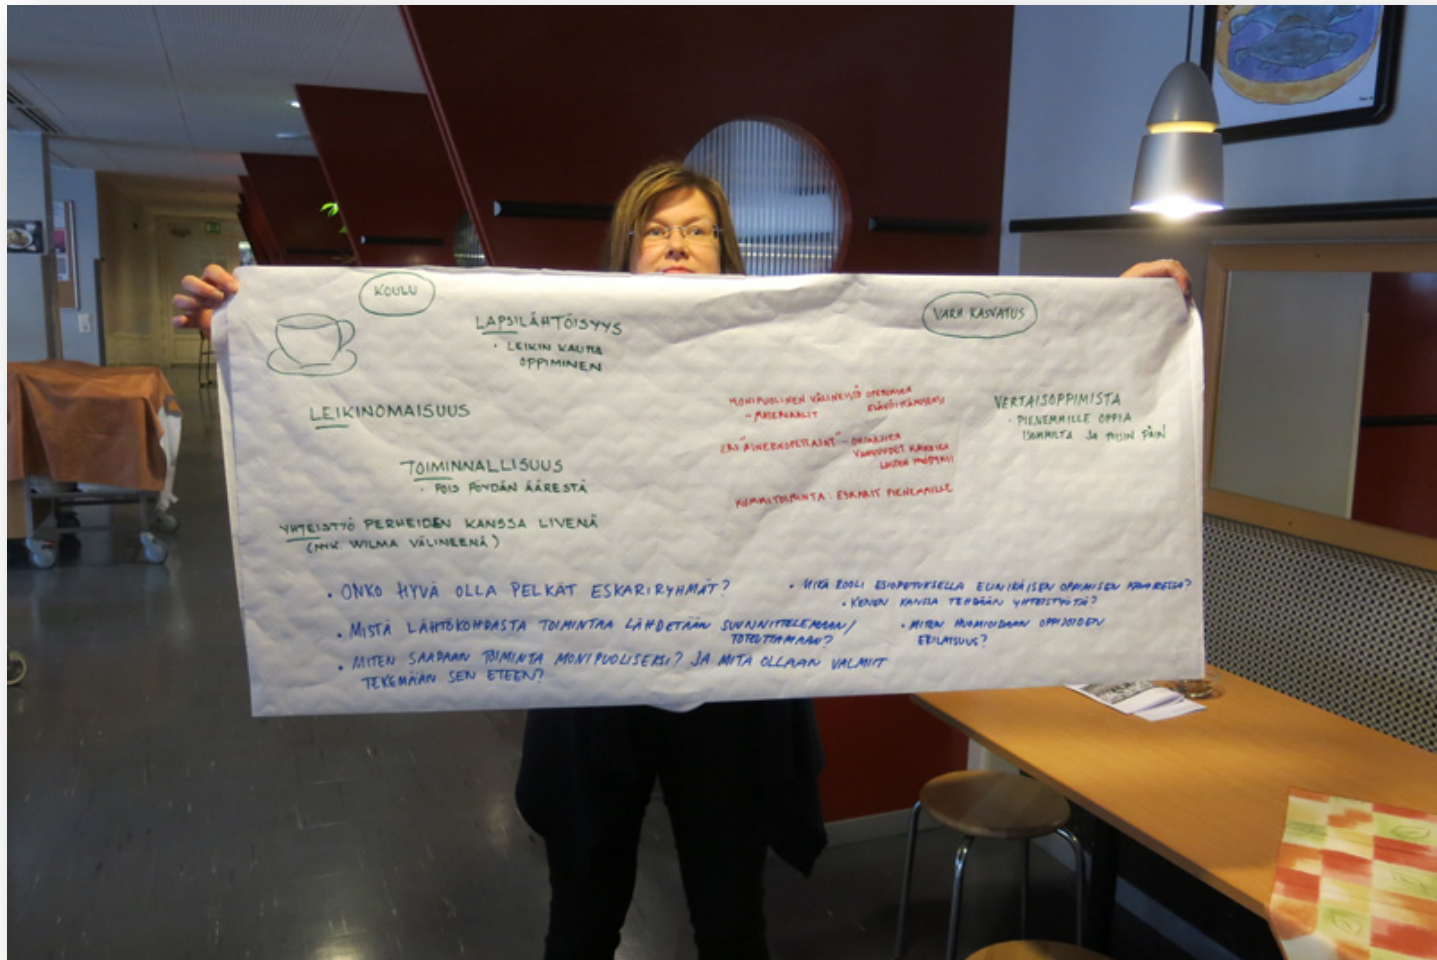 KOULU
LAPSILÄHTÖISYYS
• LEIKIN KAUTTA
OPPIMINEN
LEIKINOMAISUUS
TOIMINNALLISUUS
• POIS PÖYDÄN ÄÄRESTÄ
YHTEISTYÖ PERHEIDEN KANSSA LIVENÄ
WILMA VÄLINEENÄ)
VARH KASVATUS
MONIPUOLINEN VÄLINEISTÖ OPETUKSEN
ELÄVÖITTÄMISEKSI
- MATERIAALIT
VAHVUUDET KAIKKIEN
LASTEN HYÖDYKSI
KUMMITOIMINTA: ESKARIT PIENEMMILLE
VERTAISOPPIMISTA
• PIENEMMILLE OPPIA
ISOMMILTA JA TOISIN PÄIN
• ONKO HYVÄ OLLA PELKÄT ESKARIRYHMÄT?
• MISTÄ LÄHTÖKOHDASTA TOIMINTAA LÄHDETÄÄN SUUNNITTELEMAAN/
TOTEUTTAMAAN?
• MITEN SAADAAN TOIMINTA MONIPUOLISEKSI? JA MITÄ OLLAAN VALMIIT
TEKEMÄÄN SEN ETEEN?
• MIKÄ ROOLI ESIOPETUKSELLA ELINIKÄISEN OPPIMISEN KAARESSA?
• KENEN KANSSA TEHDÄÄN YHTEISTYÖTÄ?
• MITEN HUOMIOIDAAN OPPIJOIDEN
ERILAISUUS?